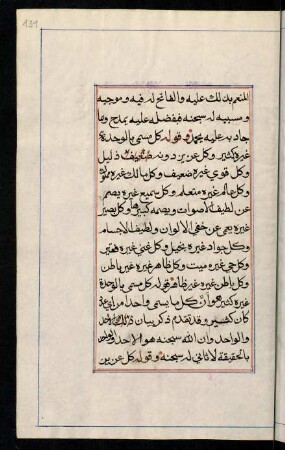 131
المنعم بذلك عليه والفاتح له فيه وموجبه
وسببه له سبحنه ففضله عليه يمدح وبما
جاد به عليه يحمد وقوله كل مسمى بالوحدة
غيره كثير وكل عزيز دونه ذليل
وكل قوي غيره ضعيف وكل مالك غيره مملوك
وكل عالم غيره متعلم وكل سميع غيره يصم
عن لطيف الاصوات ويصمه كبيرها وكل بصير
غيره يعمى عن خفي الالوان ولطيف الاجسام
وكل جواد غيره بخيل وكل غني غيره فقير
وكل حي غيره ميت وكل ظاهر غيره غير باطن
وكل باطن غيره غير ظاهر قوله كل مسمى بالوحدة
غيره كثير هو ان كل ما يسمى واحدا من اي شي
كان كثير وقد تقدم ذكر بيان ذلك
والواحد وان الله سبحنه هو الاحد
بالحقيقة لا ثاني له سبحنه وقوله كل عزيز